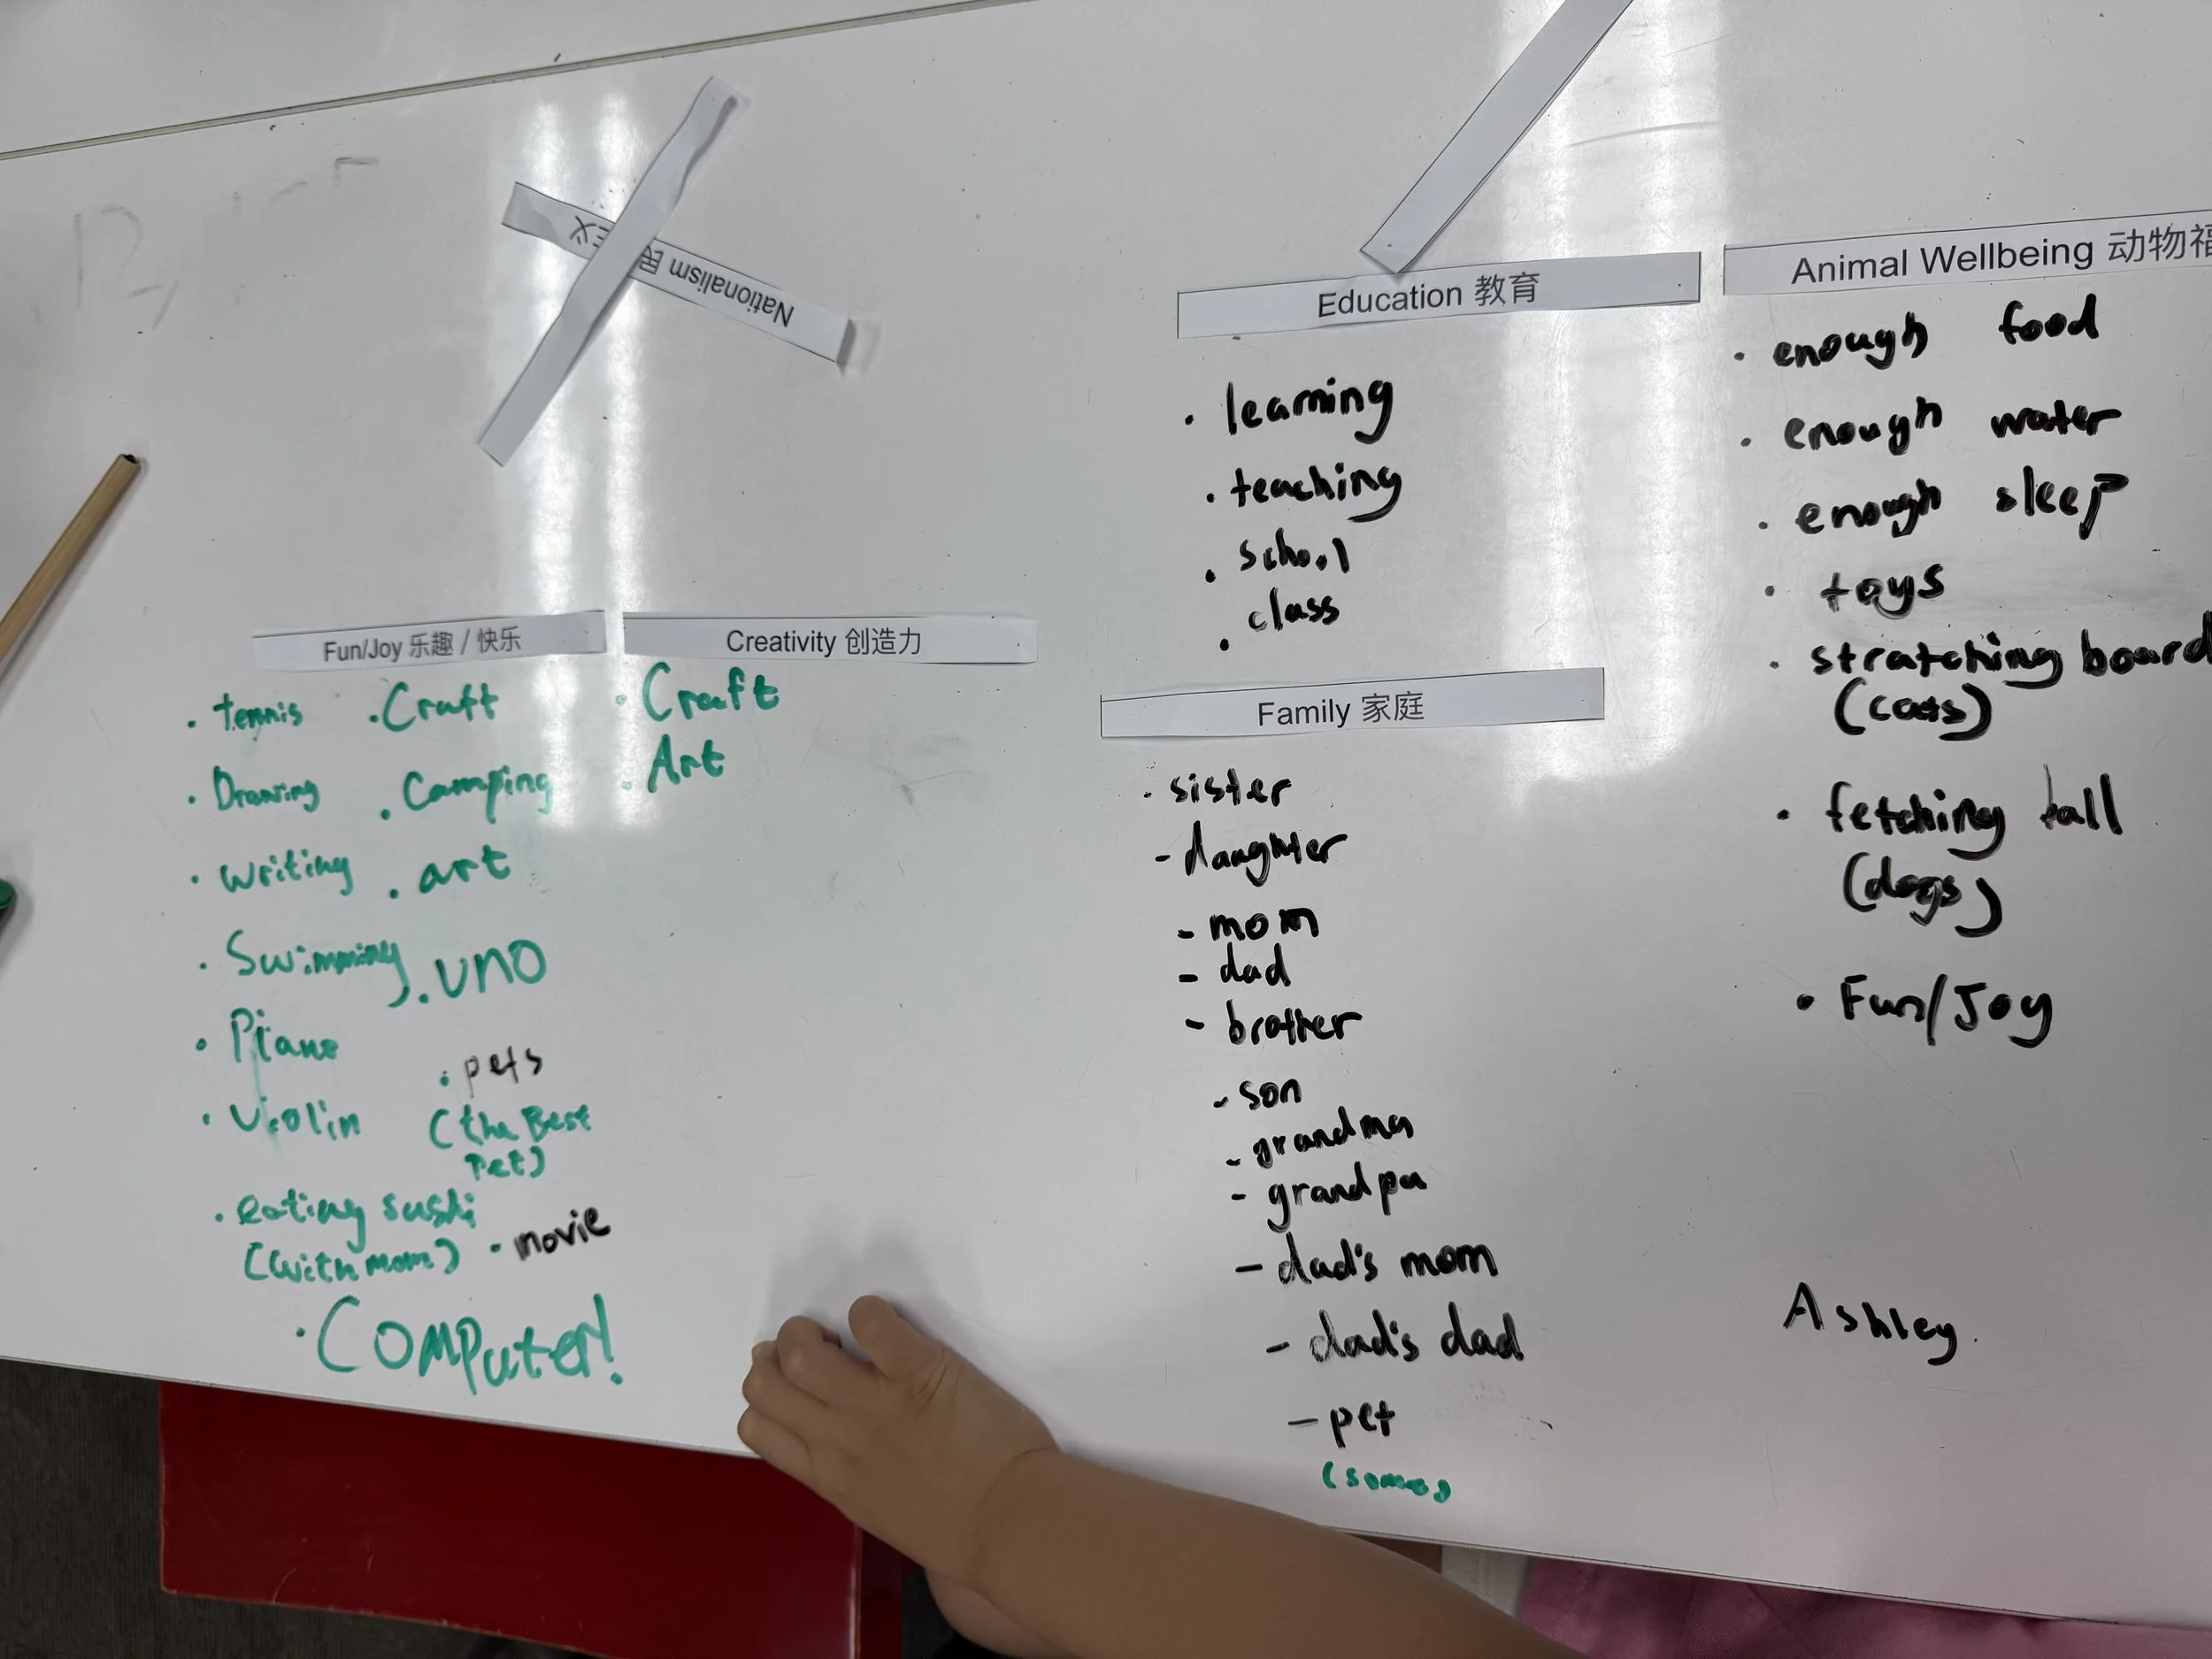 Nationalism 民
义
Education 教育
• learning
• teaching
• school
• class
Animal Wellbeing 动物福
• enough food
• enough water
• enough sleep
• toys
• stratching board
(cats)
• fetching ball
(dogs)
• Fun/Joy
Ashley.
Fun/Joy 乐趣 / 快乐
• tennis
• Drawing
• writing
• Swimming
• Piano
• Violin
• eating sushi
(with mom)
• Craft
• Camping
• art
• UNO
• pets
(the Best
Pet)
• movie
• Computer!
Creativity 创造力
• Craft
• Art
Family 家庭
• sister
- daughter
- mom
- dad
- brother
- son
- grandma
- grandpa
- dad's mom
- dad's dad
- pet
(some)